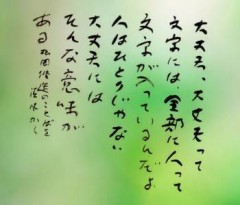 大丈夫、大丈夫って
文字には、全部に人って
文字が入っているんだよ
人はひとりじゃない
大丈夫には
そんな意味が
ある
松岡修造のことばを
から